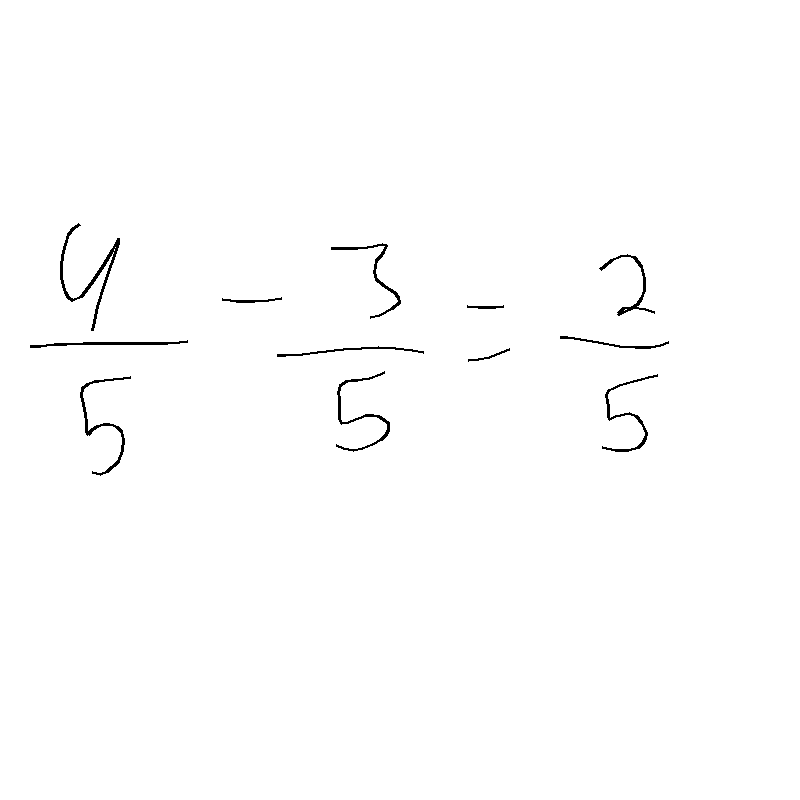 4/5 - 3/5 = 2/5